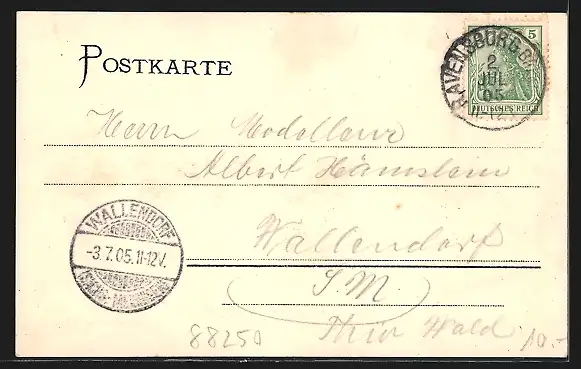 POSTKARTE
5
DEUTSCHES REICH
RAVENSBURG
2
JUL
05
Herrn Modelleur
Albert
Wallendorf
S. M.
Thür Wald
WALLENDORF
-3.7.05.11-12V.
88250
10.-